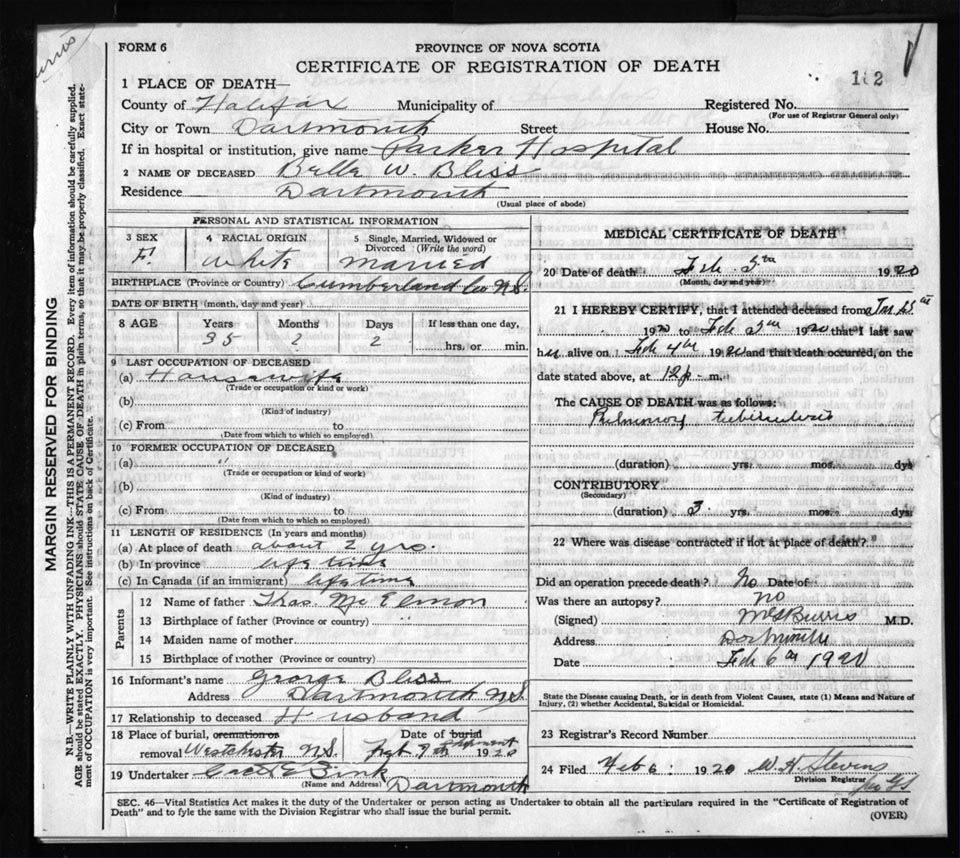 FORM 6
PROVINCE OF NOVA SCOTIA
CERTIFICATE OF REGISTRATION OF DEATH
1 PLACE OF DEATH—
102
County of Halifax Municipality of Registered No.
(For use of Registrar General only)
City or Town Dartmouth Street House No.
If in hospital or institution, give name Parker Hospital
2 NAME OF DECEASED Belle W. Bliss
Residence Dartmouth
(Usual place of abode)
MARGIN RESERVED FOR BINDING
N.B.—WRITE PLAINLY WITH UNFADING INK—THIS IS A PERMANENT RECORD. Every item of information should be carefully supplied.
AGE should be stated EXACTLY. PHYSICIANS should STATE CAUSE OF DEATH in plain terms, so that it may be properly classified. Exact state-
ment of OCCUPATION is very important. See instructions on back of Certificate.
PERSONAL AND STATISTICAL INFORMATION
3 SEX 4 RACIAL ORIGIN 5 Single, Married, Widowed or
Divorced (Write the word)
F. White Married
BIRTHPLACE (Province or Country) Cumberland Co N.S.
DATE OF BIRTH (month, day and year)
8 AGE Years Months Days If less than one day,
35 2 2 hrs. or min.
9 LAST OCCUPATION OF DECEASED
(a) Housewife
(Trade or occupation or kind of work)
(b)
(Kind of industry)
(c) From to
(Date from which to which so employed)
10 FORMER OCCUPATION OF DECEASED
(a) "
(Trade or occupation or kind of work)
(b)
(Kind of industry)
(c) From to
(Date from which to which so employed)
11 LENGTH OF RESIDENCE (In years and months)
(a) At place of death about 2 yrs.
(b) In province life time
(c) In Canada (if an immigrant) life time
Parents
12 Name of father Thos. Mc Elmon
13 Birthplace of father (Province or country) "
14 Maiden name of mother
15 Birthplace of mother (Province or country)
16 Informant's name George Bliss
Address Dartmouth N.S.
17 Relationship to deceased Husband
18 Place of burial, cremation or Date of burial shipment
removal Westchester N.S. 7th 1920
19 Undertaker Zink
(Name and Address) Dartmouth
MEDICAL CERTIFICATE OF DEATH
20 Date of death Feb. 5th 1920
(Month, day and year)
21 I HEREBY CERTIFY, that I attended deceased from
1920 to Feb 5th 1920 that I last saw
her alive on Feb 4th 1920 and that death occurred, on the
date stated above, at 12 p. m.
The CAUSE OF DEATH was as follows:
Pulmonary tuberculosis
(duration) yrs. mos. dys
CONTRIBUTORY
(Secondary)
(duration) 3 yrs. mos. dys.
22 Where was disease contracted if not at place of death?
Did an operation precede death? No Date of
Was there an autopsy? no
(Signed) Burris M.D.
Address Dartmouth
Date Feb 6th 1920
State the Disease causing Death, or in death from Violent Causes, state (1) Means and Nature of
Injury, (2) whether Accidental, Suicidal or Homicidal.
23 Registrar's Record Number
24 Filed Feb 6 1920 W. H. Stevens
Division Registrar
SEC. 46—Vital Statistics Act makes it the duty of the Undertaker or person acting as Undertaker to obtain all the particulars required in the "Certificate of Registration of
Death" and to fyle the same with the Division Registrar who shall issue the burial permit.
(OVER)